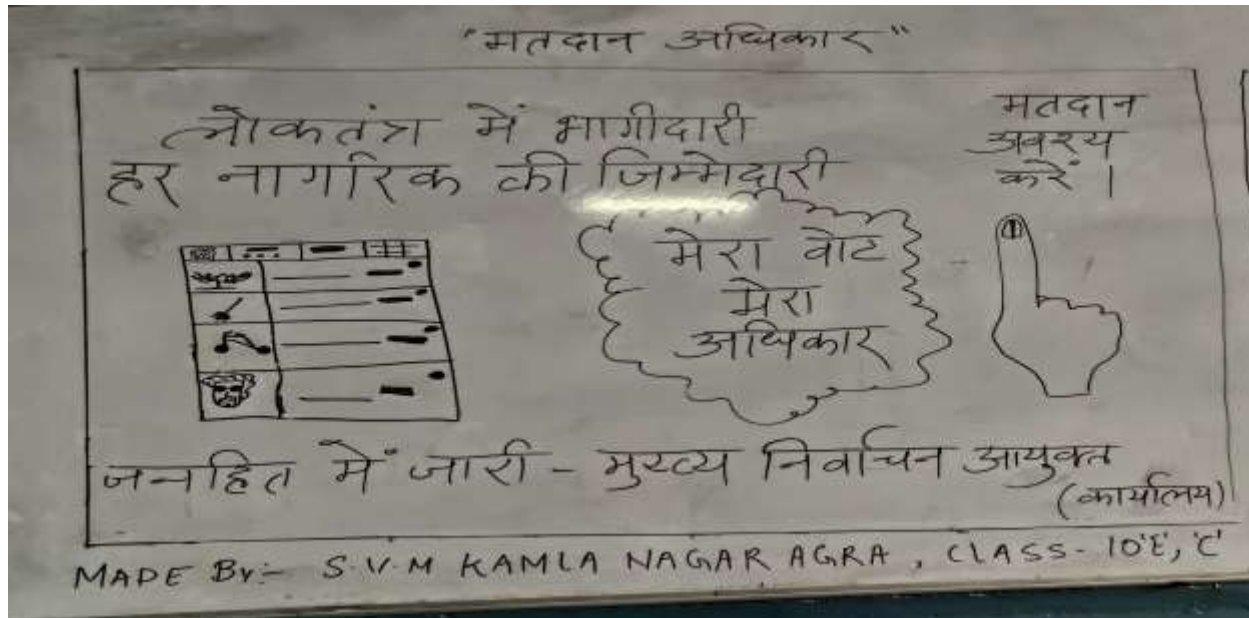 "मतदान अधिकार"
लोकतंत्र में भागीदारी
हर नागरिक की जिम्मेदारी
मतदान
अवश्य
करें।
मेरा वोट
मेरा
अधिकार
जनहित में जारी - मुख्य निर्वाचन आयुक्त
(कार्यालय)
MADE BY:- S.V.M KAMLA NAGAR AGRA, CLASS- 10'E', 'C'